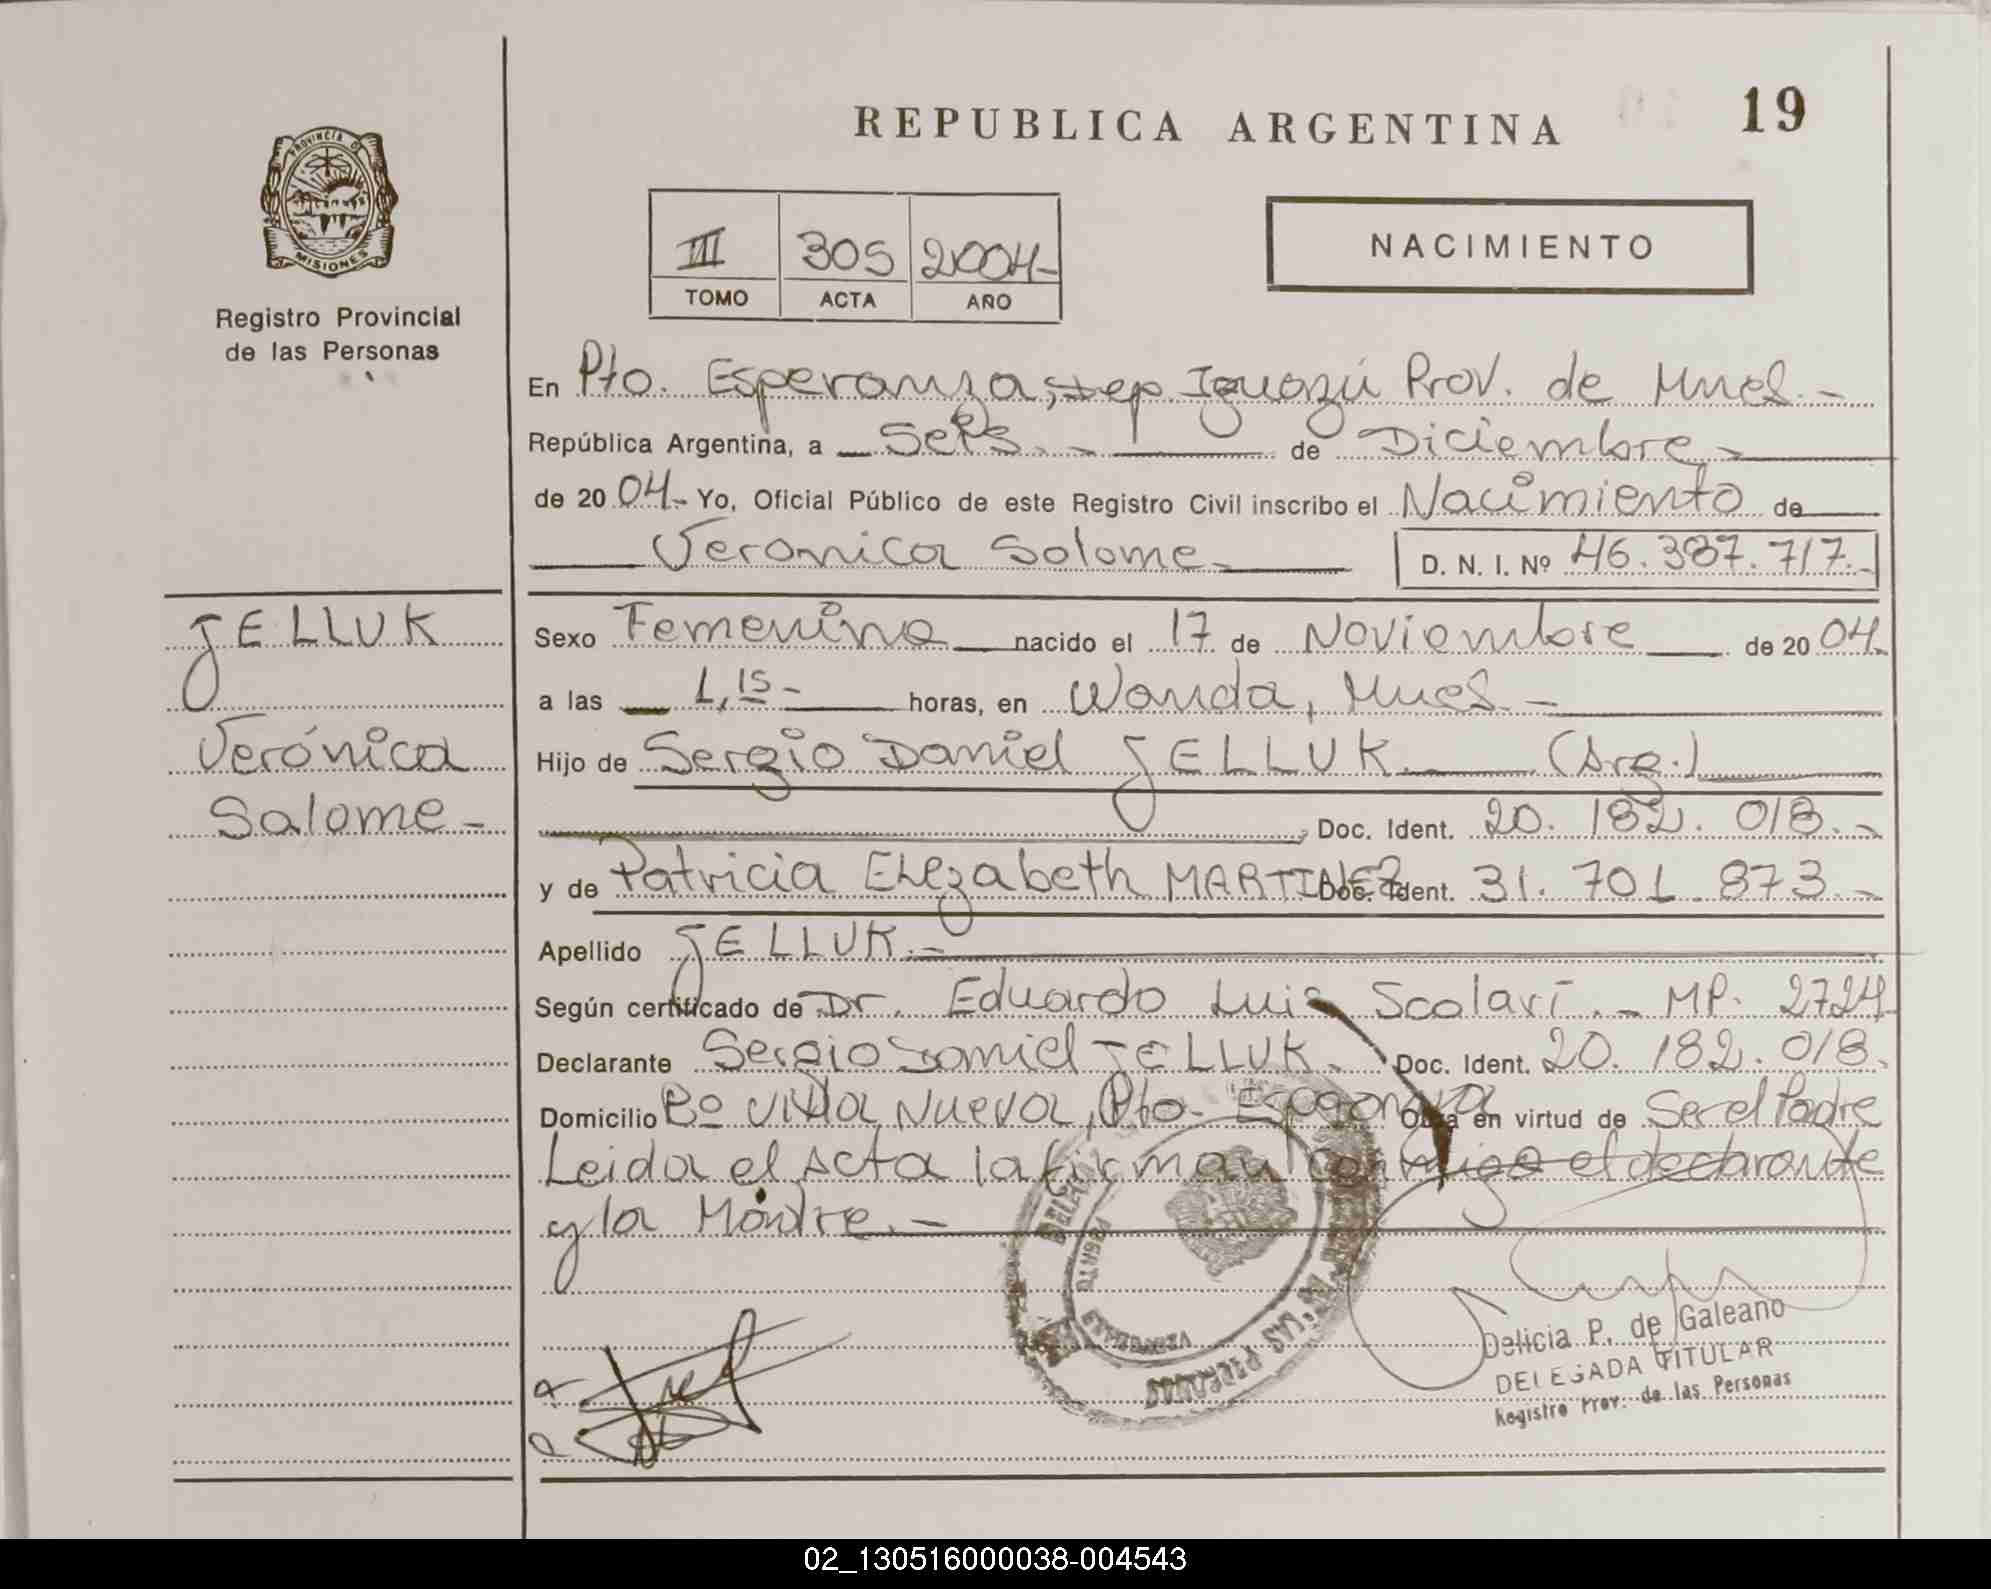 REPUBLICA ARGENTINA
19
PROVINCIA DE
MISIONES
Registro Provincial
de las Personas
III 305 2004-
TOMO ACTA AÑO
NACIMIENTO
En Pto. Esperanza, Dep. Iguazú Prov. de Mnes. -
República Argentina, a Seis. - de Diciembre. -
de 20 04.- Yo, Oficial Público de este Registro Civil inscribo el Nacimiento de
Veronica Solome. - D. N. I. Nº 46.387.717.-
JELLUK
Verónica
Salome -
Sexo Femenino nacido el 17 de Noviembre de 20 04.
a las 1,15 - horas, en Wanda, Mnes. -
Hijo de Sergio Daniel JELLUK. (Arg.)
Doc. Ident. 20.182.018.-
y de Patricia Elizabeth MARTINEZ Doc. Ident. 31.701.873.-
Apellido JELLUK.-
Según certificado de Dr. Eduardo Luis Scolari. - MP. 2724
Declarante Sergio Daniel JELLUK. Doc. Ident. 20.182.018.
Domicilio Bº Villa Nueva, Pto. Esperanza Obra en virtud de Ser el Padre
Leida el Acta la firman conmigo el declarante
y la Madre. -
Delicia P. de Galeano
DELEGADA TITULAR
Registro Prov. de las Personas
02_130516000038-004543